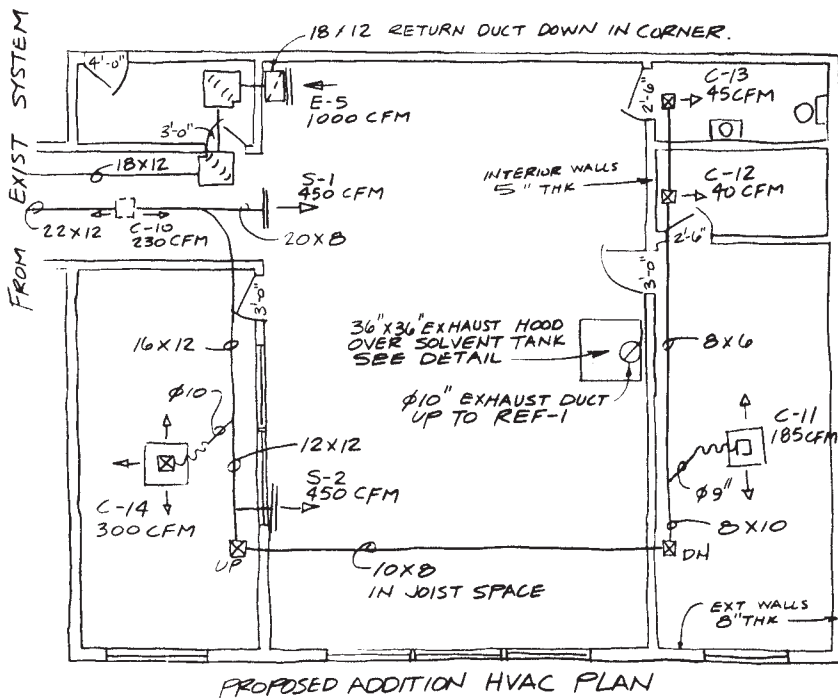 18X12 RETURN DUCT DOWN IN CORNER.
FROM EXIST SYSTEM
4'-0"
E-5
1000 CFM
3'-0"
18X12
S-1
450 CFM
22X12
C-10
230 CFM
20X8
2'-6"
C-13
45CFM
INTERIOR WALLS
5" THK
C-12
40 CFM
2'-6"
3'-0"
3'-0"
16X12
36"X36" EXHAUST HOOD
OVER SOLVENT TANK
SEE DETAIL
8X6
ϕ10" EXHAUST DUCT
UP TO REF-1
ϕ10
C-11
185CFM
12X12
S-2
450 CFM
C-14
300 CFM
ϕ9"
8X10
UP
10X8
IN JOIST SPACE
DN
EXT WALLS
8" THK
PROPOSED ADDITION HVAC PLAN